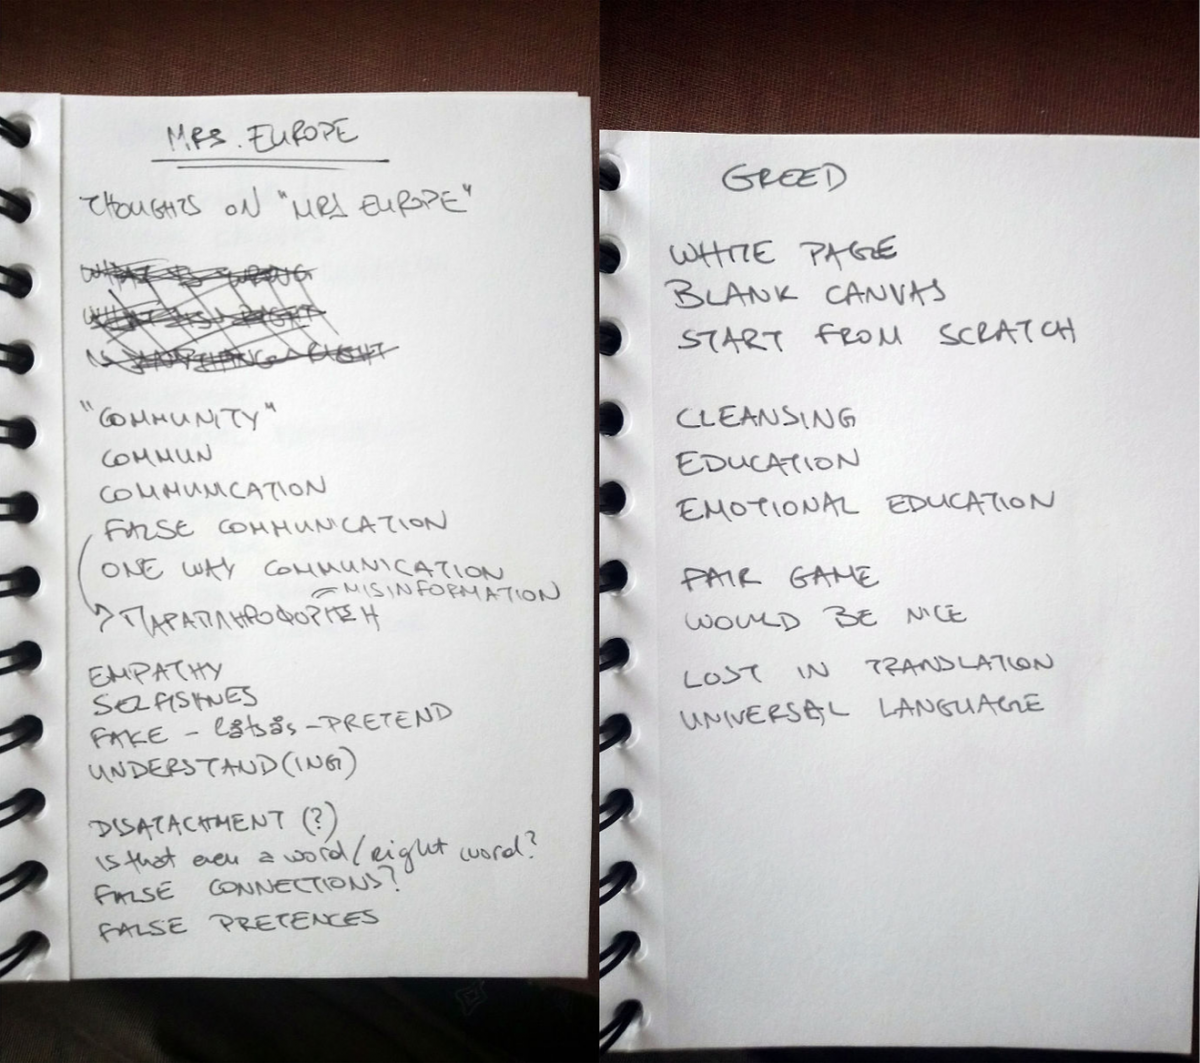 MRS. EUROPE
THOUGHTS ON "MRS EUROPE"
WHAT IS WRONG
WHAT IS RIGHT
IS ANYTHING RIGHT
"COMMUNITY"
COMMUN
COMMUNICATION
FALSE COMMUNICATION
ONE WAY COMMUNICATION
= MISINFORMATION
ΠΑΡΑΠΛΗΡΟΦΟΡΗΣΗ
EMPATHY
SELFISHNES
FAKE - låtsås - PRETEND
UNDERSTAND(ING)
DISATACHMENT (?)
is that even a word/right word?
FALSE CONNECTIONS?
FALSE PRETENCES
GREED
WHITE PAGE
BLANK CANVAS
START FROM SCRATCH
CLEANSING
EDUCATION
EMOTIONAL EDUCATION
PAIR GAME
WOULD BE NICE
LOST IN TRANSLATION
UNIVERSAL LANGUAGE